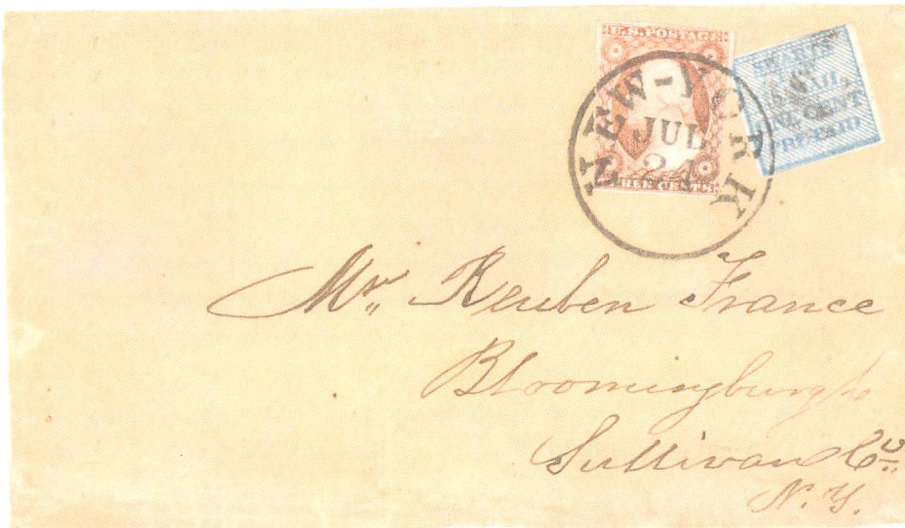 U.S. POSTAGE
THREE CENTS
NEW-YORK
JUL
24
ONE CENT
PRE-PAID
Mr. Reuben France
Bloomingburgh
Sullivan Co.
N.Y.